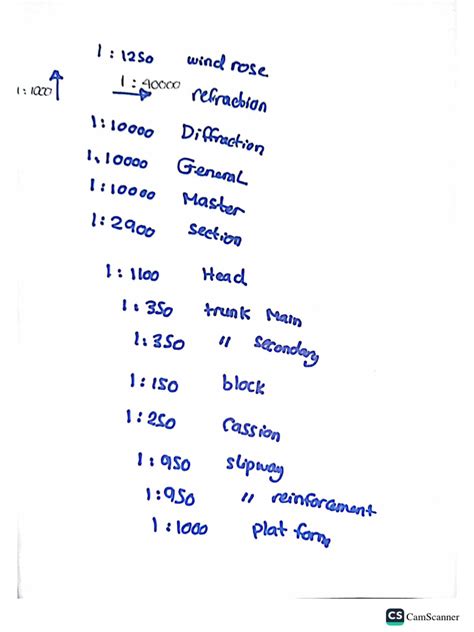 1 : 1250 wind rose
1 : 1000 ↑ 1 : 40000 → refraction
1:10000 Diffraction
1:10000 General
1:10000 Master
1:2900 section
1:1100 Head
1:350 trunk Main
1:350 " secondary
1:150 block
1:250 Cassion
1:950 slipway
1:950 " reinforcement
1:1000 plat form
CS CamScanner